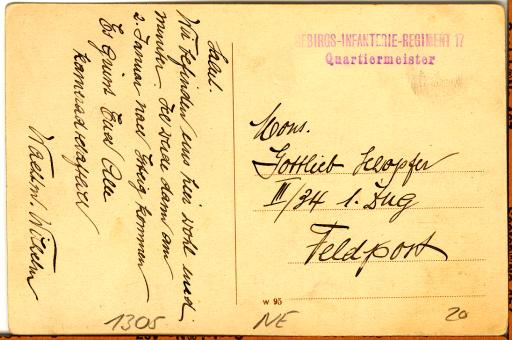 Saal.
Wir befinden uns hier wohl und
munter. Ich werde dann am
2. Januar nach Brugg kommen
Es grüsst Euch Alle
kameradschaftl.
Wachtm. Wilhelm
GEBIRGS-INFANTERIE-REGIMENT 17
Quartiermeister
Mons.
Gottlieb Schopfer
III/34 1. Zug
Feldpost
W 95
1305
NE
20